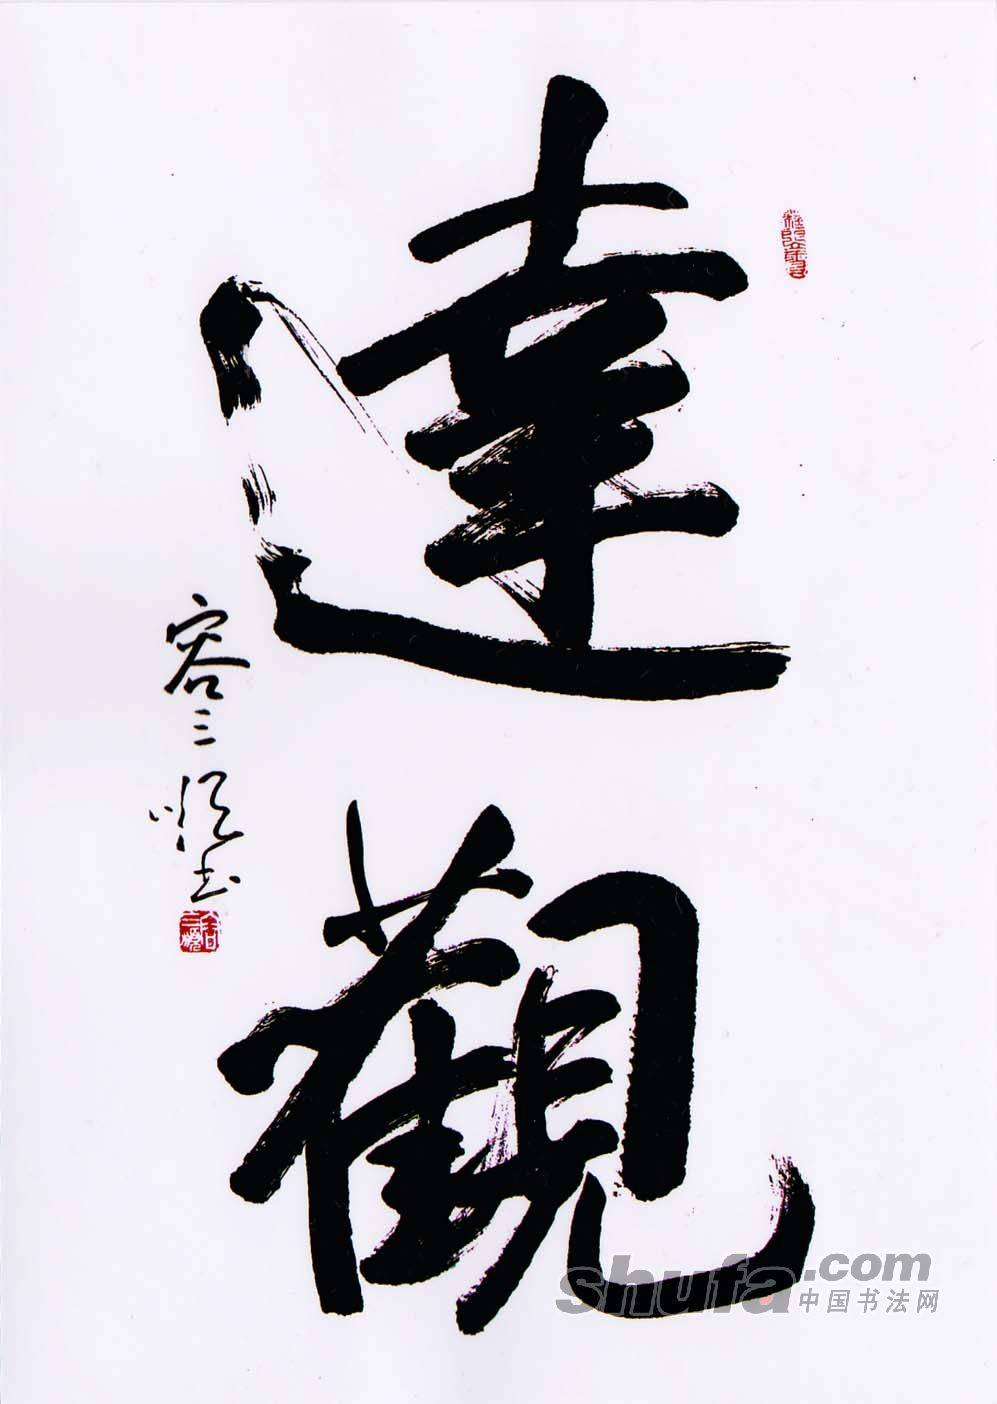 達觀
容三順书
shufa.com
中国书法网